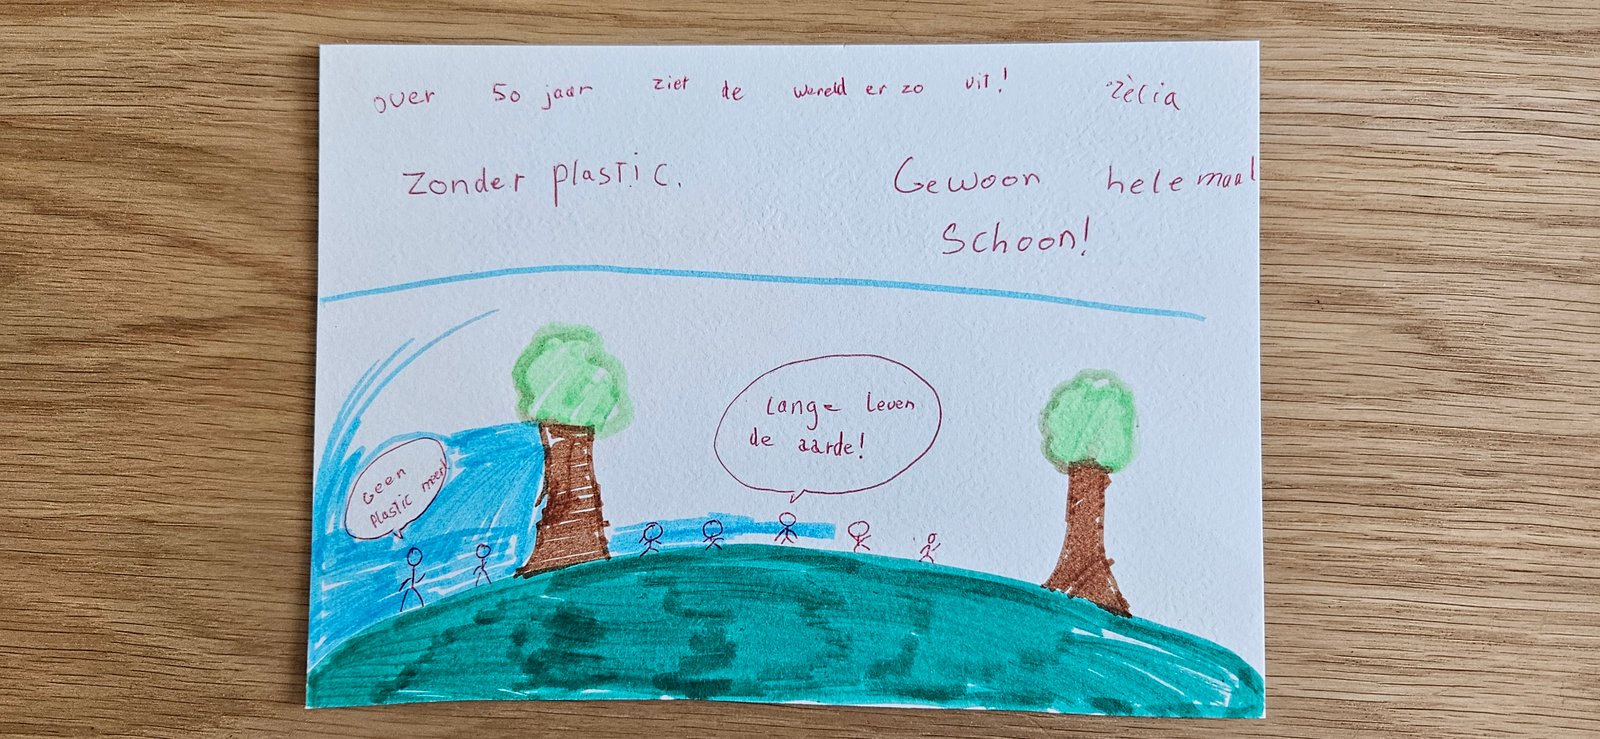 over 50 jaar ziet de wereld er zo uit! Zècia
Zonder plastic. Gewoon helemaal
Schoon!
Lang leven
de aarde!
Geen
plastic meer!